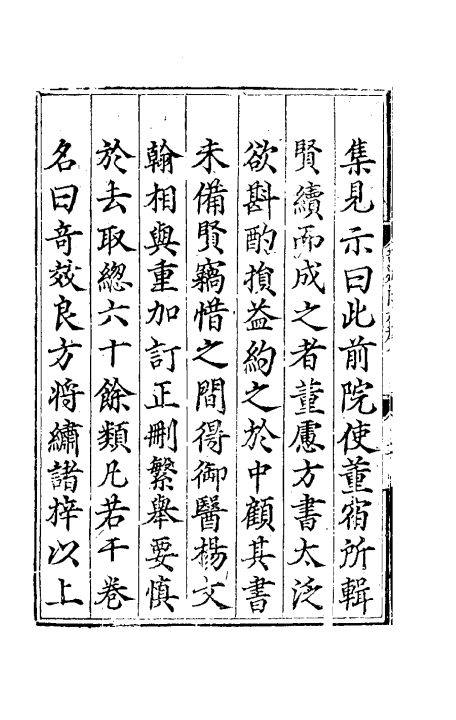 集見示曰此前院使董宿所輯
賢續而成之者董慮方書太泛
欲斟酌損益約之於中顧其書
未備賢竊惜之間得御醫楊文
翰相與重加訂正刪繁舉要慎
於去取總六十餘類凡若干卷
名曰竒效良方将繡諸梓以上